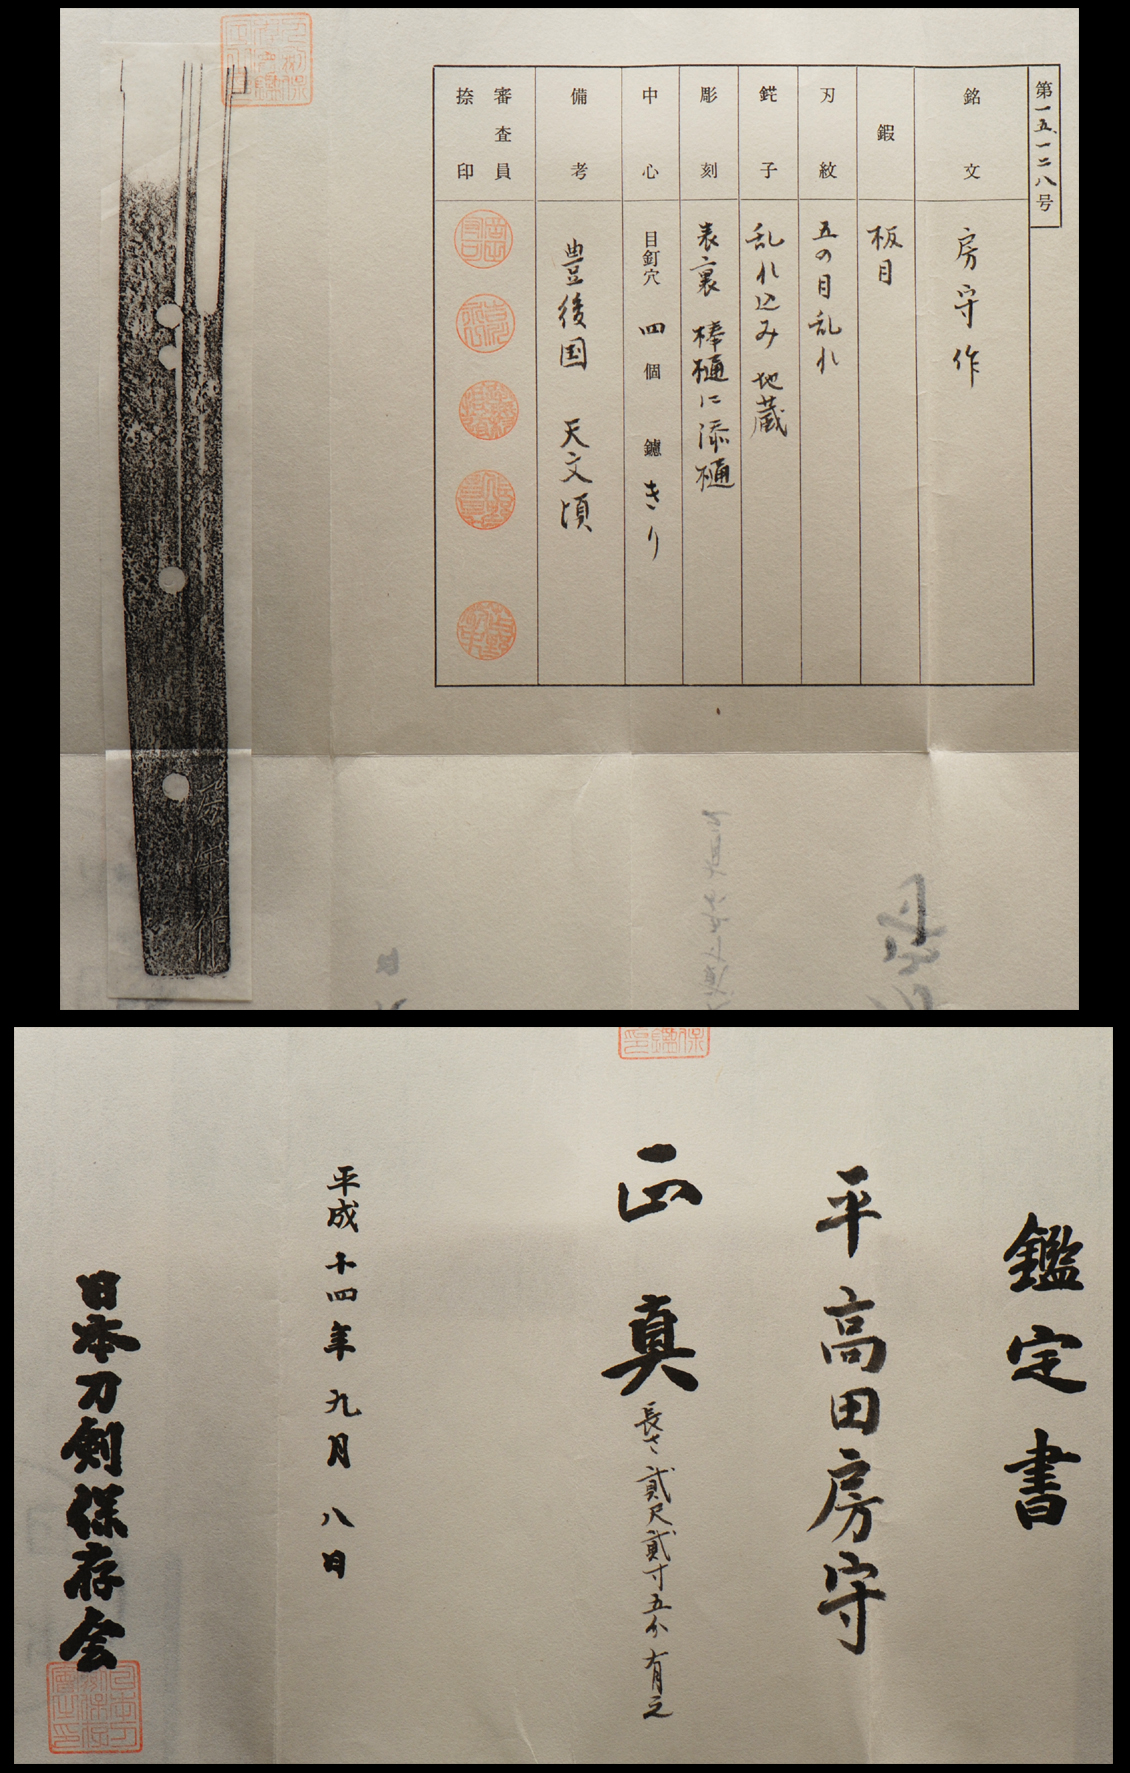 第一五、一二八号
銘文
房守作
鍜
板目
刃紋
五の目乱れ
鋩子
乱れ込み 地蔵
彫刻
表裏 棒樋に添樋
中心
目釘穴 四個 鑢 きり
備考
豊後国 天文頃
審査員
捺印
房守作
鑑定書
平高田房守
正真
長さ貳尺貳寸五分有之
平成十四年九月八日
日本刀剣保存会